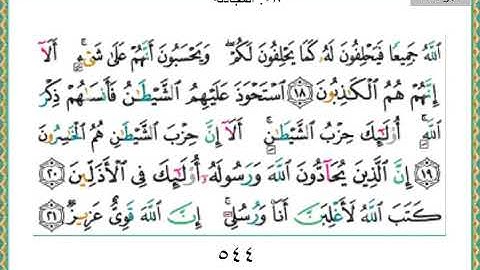 اللَّهُ جَمِيعًا فَيَحْلِفُونَ لَهُ كَمَا يَحْلِفُونَ لَكُمْ ۖ وَيَحْسَبُونَ أَنَّهُمْ عَلَىٰ شَيْءٍ ۚ أَلَا
إِنَّهُمْ هُمُ الْكَاذِبُونَ ١٨ اسْتَحْوَذَ عَلَيْهِمُ الشَّيْطَانُ فَأَنسَاهُمْ ذِكْرَ
اللَّهِ ۚ أُولَٰئِكَ حِزْبُ الشَّيْطَانِ ۚ أَلَا إِنَّ حِزْبَ الشَّيْطَانِ هُمُ الْخَاسِرُونَ
١٩ إِنَّ الَّذِينَ يُحَادُّونَ اللَّهَ وَرَسُولَهُ أُولَٰئِكَ فِي الْأَذَلِّينَ ٢٠
كَتَبَ اللَّهُ لَأَغْلِبَنَّ أَنَا وَرُسُلِي ۚ إِنَّ اللَّهَ قَوِيٌّ عَزِيزٌ ٢١
٥٤٤